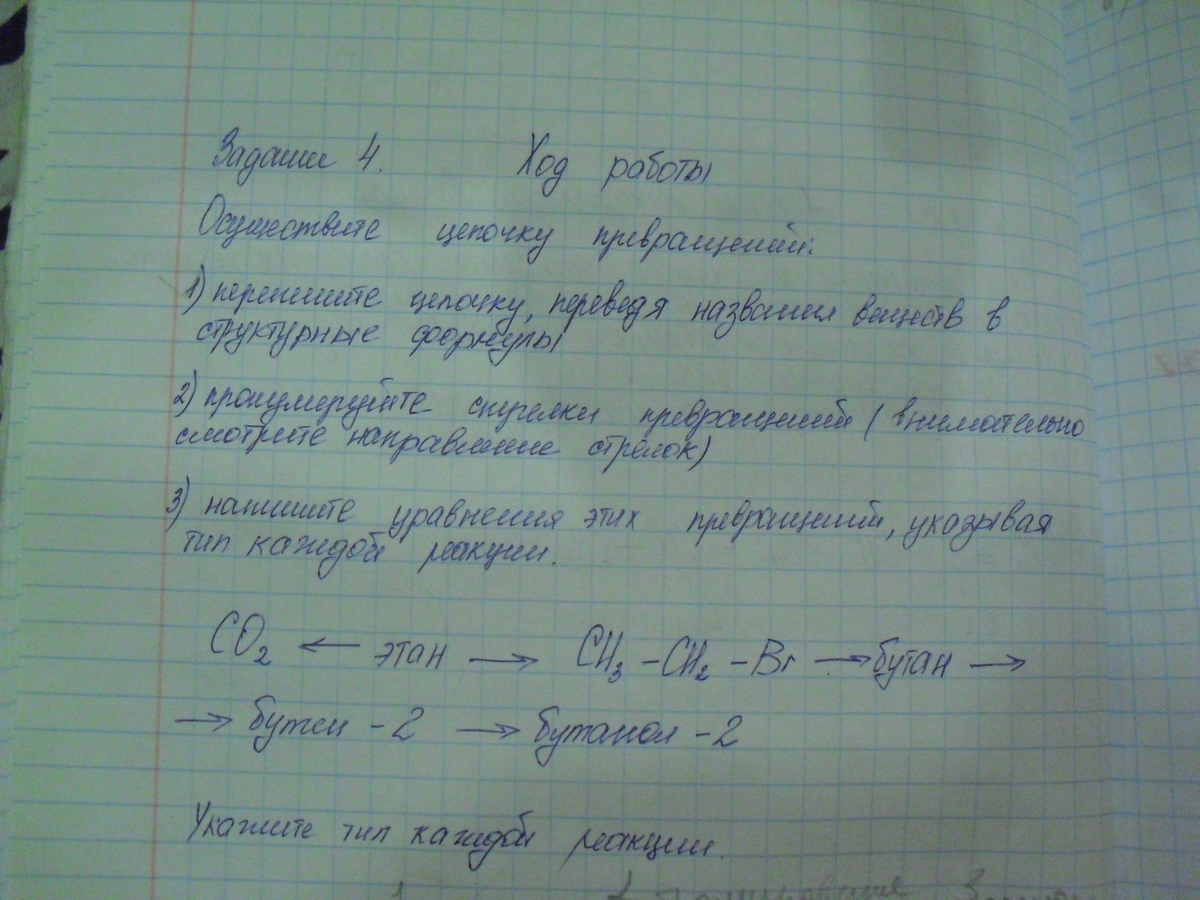 Задание 4. Ход работы
Осуществите цепочку превращений:
1) перепишите цепочку, переведя названия веществ в
структурные формулы
2) пронумеруйте стрелки превращений (внимательно
смотрите направление стрелок)
3) напишите уравнения этих превращений, указывая
тип каждой реакции.
CO₂ ← этан → CH₃ – CH₂ – Br → бутан →
→ бутен – 2 → бутанол – 2
Укажите тип каждой реакции.